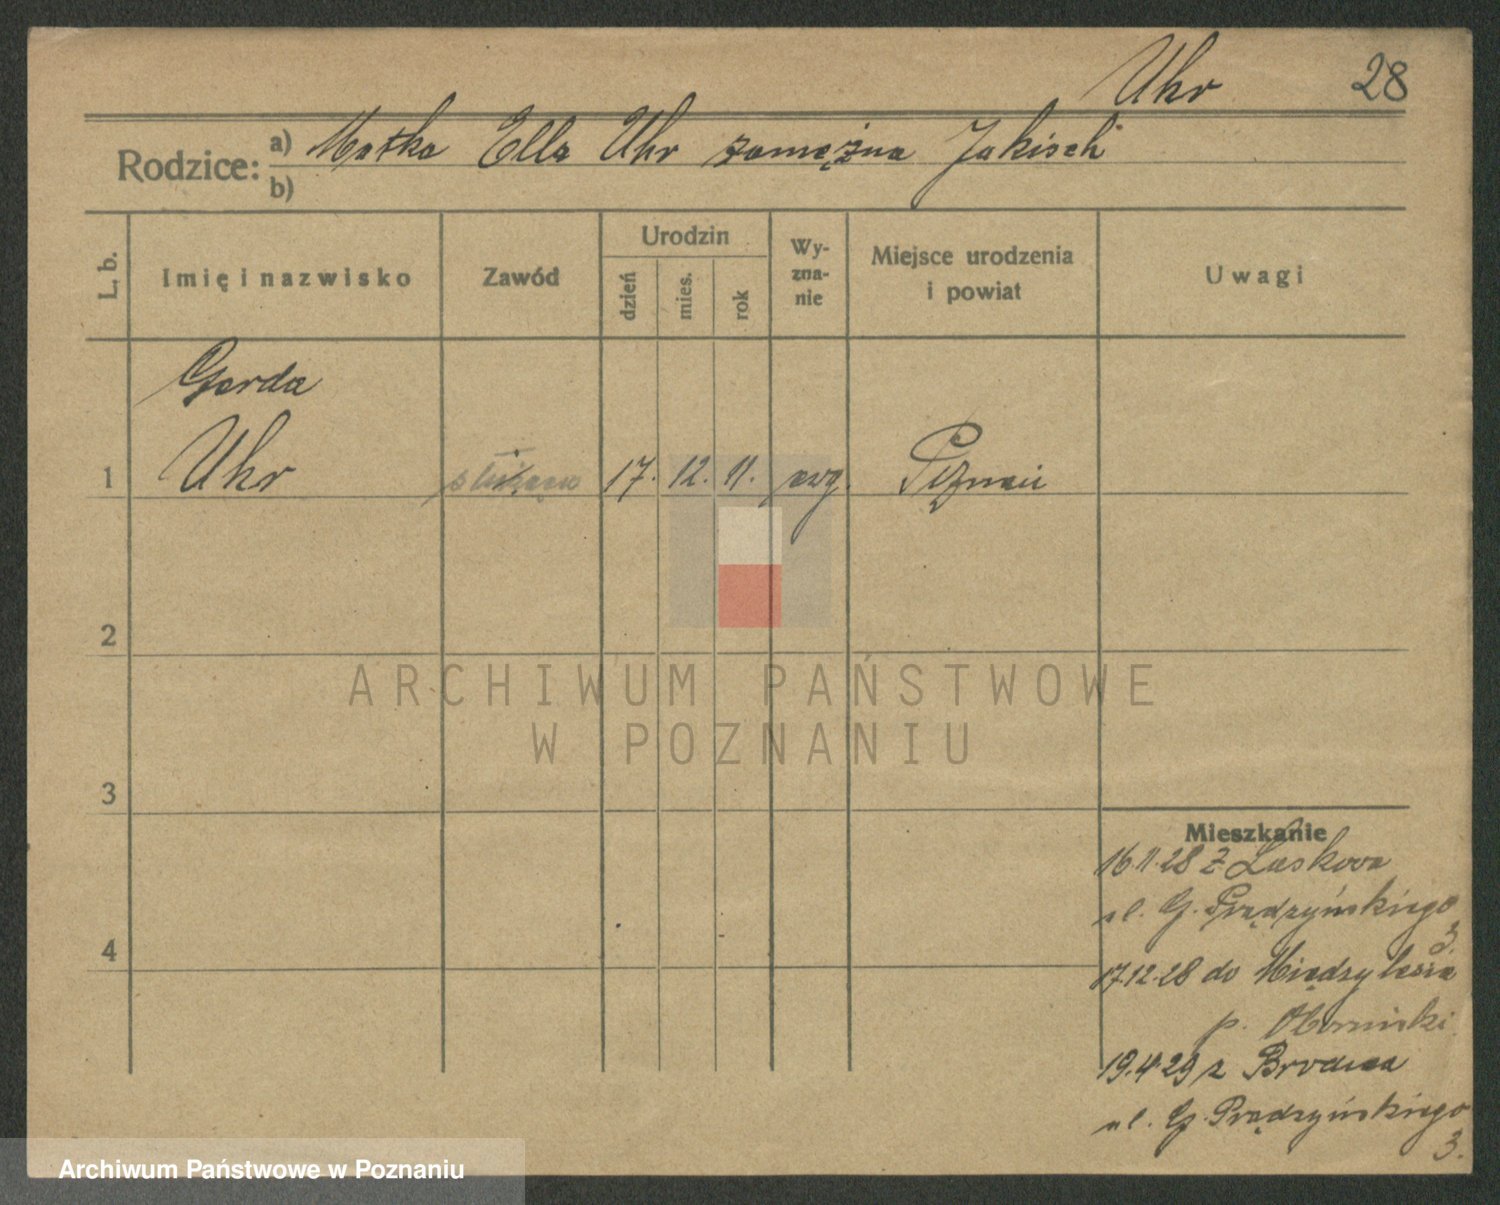 Uhr 28
Rodzice: a) Matka Ella Uhr zamężna Jakisch
b)
L. b. Imię i nazwisko Zawód Urodzin dzień mies. rok Wy-zna-nie Miejsce urodzenia i powiat Uwagi
Gerda
1 Uhr służąca 17. 12. 11. ewg. Poznań
2
ARCHIWUM PAŃSTWOWE
W POZNANIU
3
Mieszkanie
16.11.28 z Laskowa
ul. G. Prądzyńskiego
3.
4
17.12.28 do Międzylesia
p. Obornicki
19.4.29 z
ul. G. Prądzyńskiego
3.
Archiwum Państwowe w Poznaniu